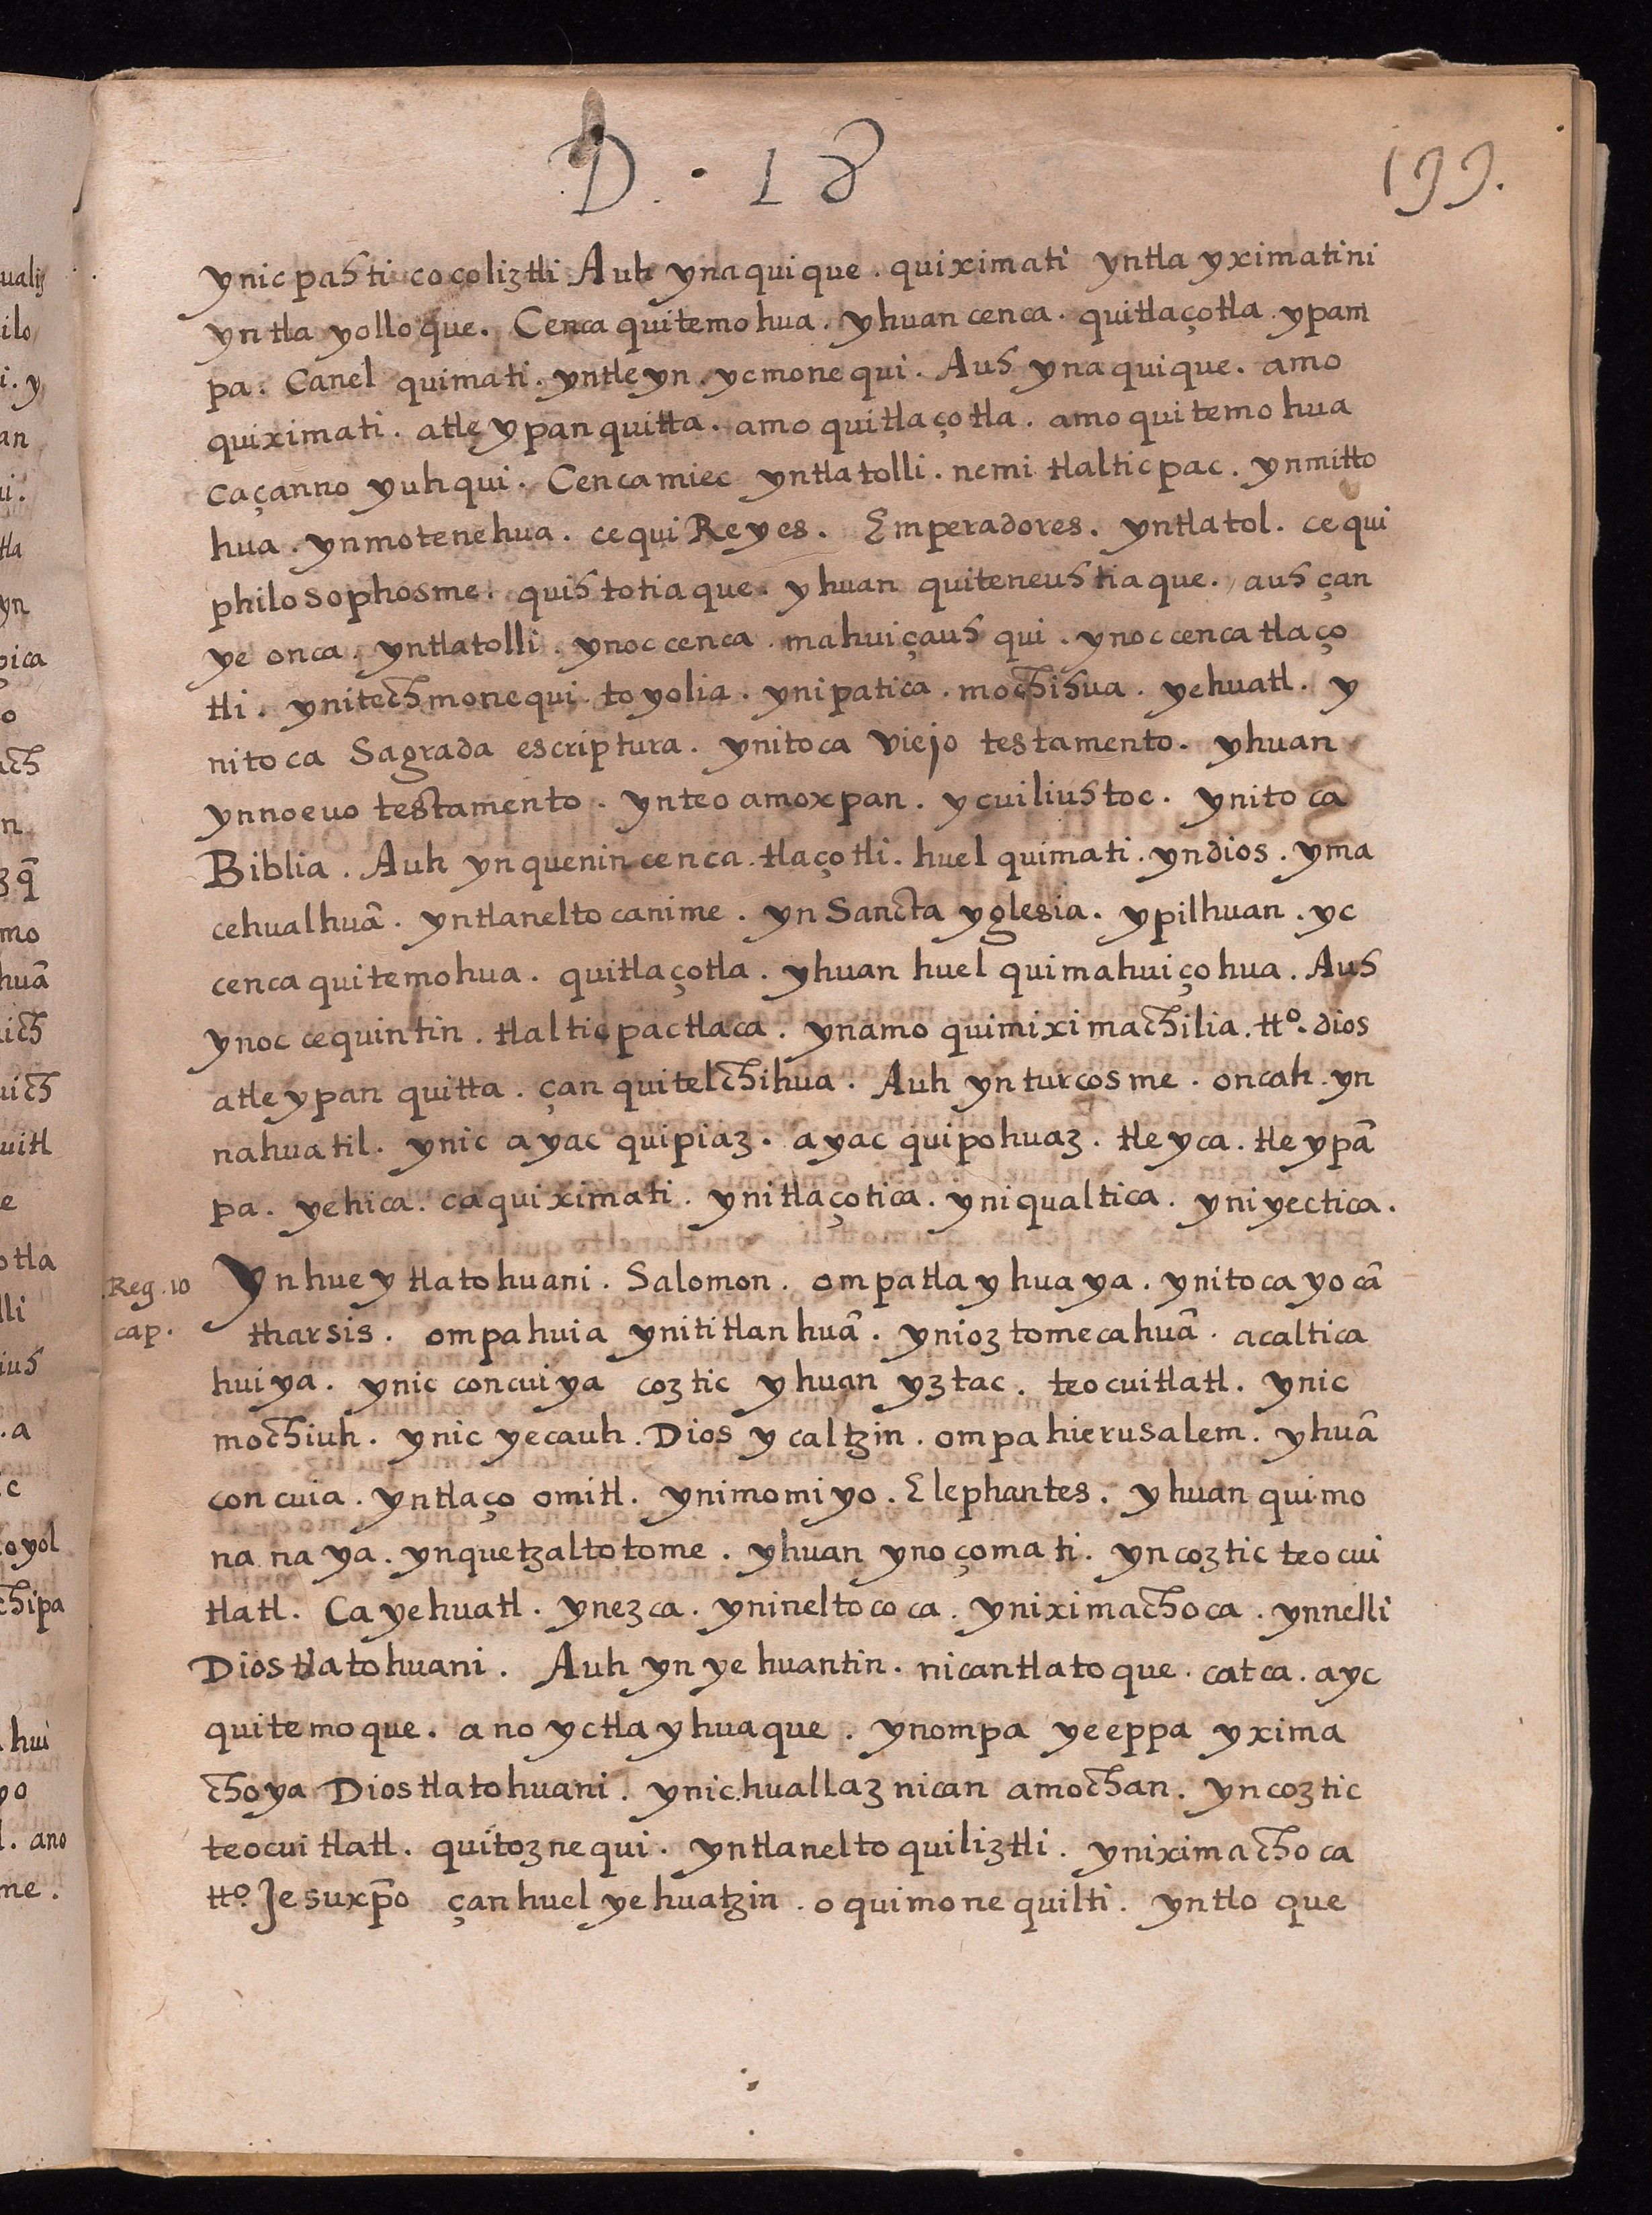 D. . 18
199.
ynic pahti cocoliztli Auh ynaquique . quiximati yntla yximatini
yntla yolloque. Cenca quitemohua . yhuan cenca . quitlaçotla . ypam
pa . Canel quimati . yntleyn . ycmonequi . Auh ynaquique . amo
quiximati . atle ypan quitta . amo quitlaçotla . amo quitemohua
caçanno yuhqui . Cenca miec yntlatolli . nemi tlalticpac . ynmitto
hua . ynmotenehua . cequi Reyes . Emperadores . yntlatol . cequi
philosophosme . quihtotiaque . yhuan quiteneuhtiaque . auh çan
ye onca . yntlatolli . ynoc cenca . mahuiçauhqui . ynoc cenca tlaço
tli . ynitech monequi . toyolia . ynipatica . mochihua . yehuatl . y
nitoca Sagrada escriptura . ynitoca viejo testamento . yhuan
ynnoeuo testamento . ynteoamoxpan . ycuiliuhtoc . ynitoca
Biblia . Auh ynquenin cenca . tlaçotli . huel quimati . yndios . yma
cehualhuā . yntlaneltocanime . yn Sancta yglesia . ypilhuan . yc
cenca quitemohua . quitlaçotla . yhuan huel quimahuiçohua . Auh
ynoc cequintin . tlalticpactlaca . ynamo quimiximachilia . tto. dios
atle ypan quitta . çan quitelchihua . Auh ynturcosme . oncah . yn
nahuatil . ynic ayac quipiaz . ayac quipohuaz . tleyca . tleypā
pa . yehica . caquiximati . ynitlaçotica . yniqualtica . yniyectica .
Reg. 10
cap.
Ynhuey tlatohuani . Salomon . ompatlayhuaya . ynitocayocā
tharsis . ompahuia ynititlanhuā . ynioztomecahuā . acaltica
huiya . ynic concuiya coztic yhuan yztac . teocuitlatl . ynic
mochiuh . ynic yecauh . Dios ycaltzin . ompa hierusalem . yhuā
concuia . yntlaço omitl . ynimomiyo . Elephantes . yhuan quimo
nanaya . ynquetzaltotome . yhuan ynoçomati . yncoztic teocui
tlatl . Ca yehuatl . ynezca . ynineltococa . yniximachoca . ynnelli
Dios tlatohuani . Auh yn yehuantin . nicantlatoque . catca . ayc
quitemoque . ano yctlayhuaque . ynompa yeeppa yxima
choya Dios tlatohuani . ynic huallaz nican amochan . yncoztic
teocuitlatl . quitoznequi . yntlaneltoquiliztli . yniximachoca
tto. Jesuxp̄o çanhuel yehuatzin . oquimonequilti . yntloque